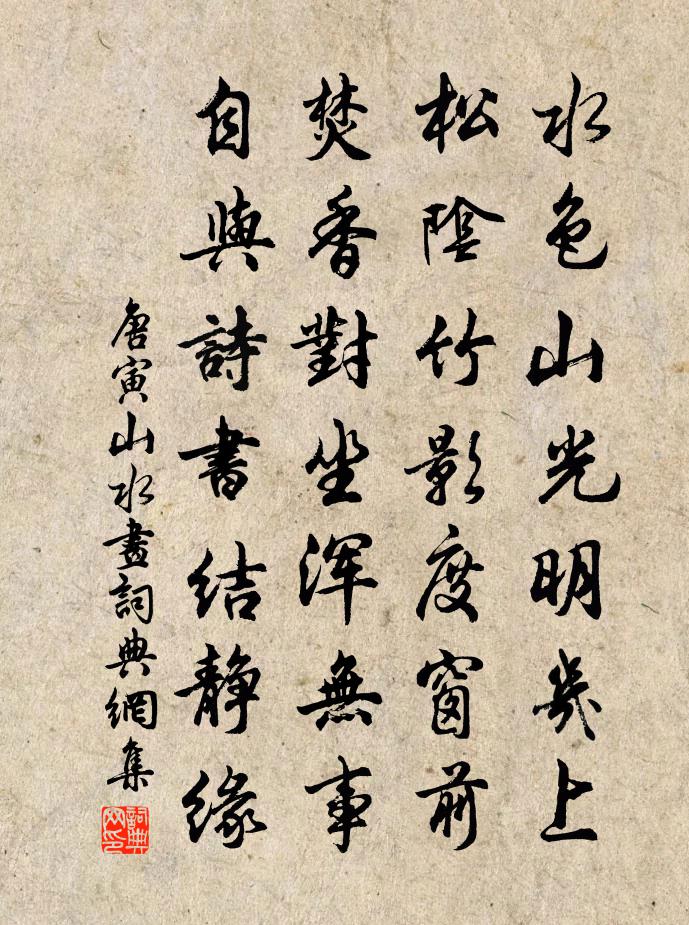 水色山光明幾上
松陰竹影度窗前
焚香對坐渾無事
自與詩書結静緣
唐寅山水畫詞典網集
詞典网印